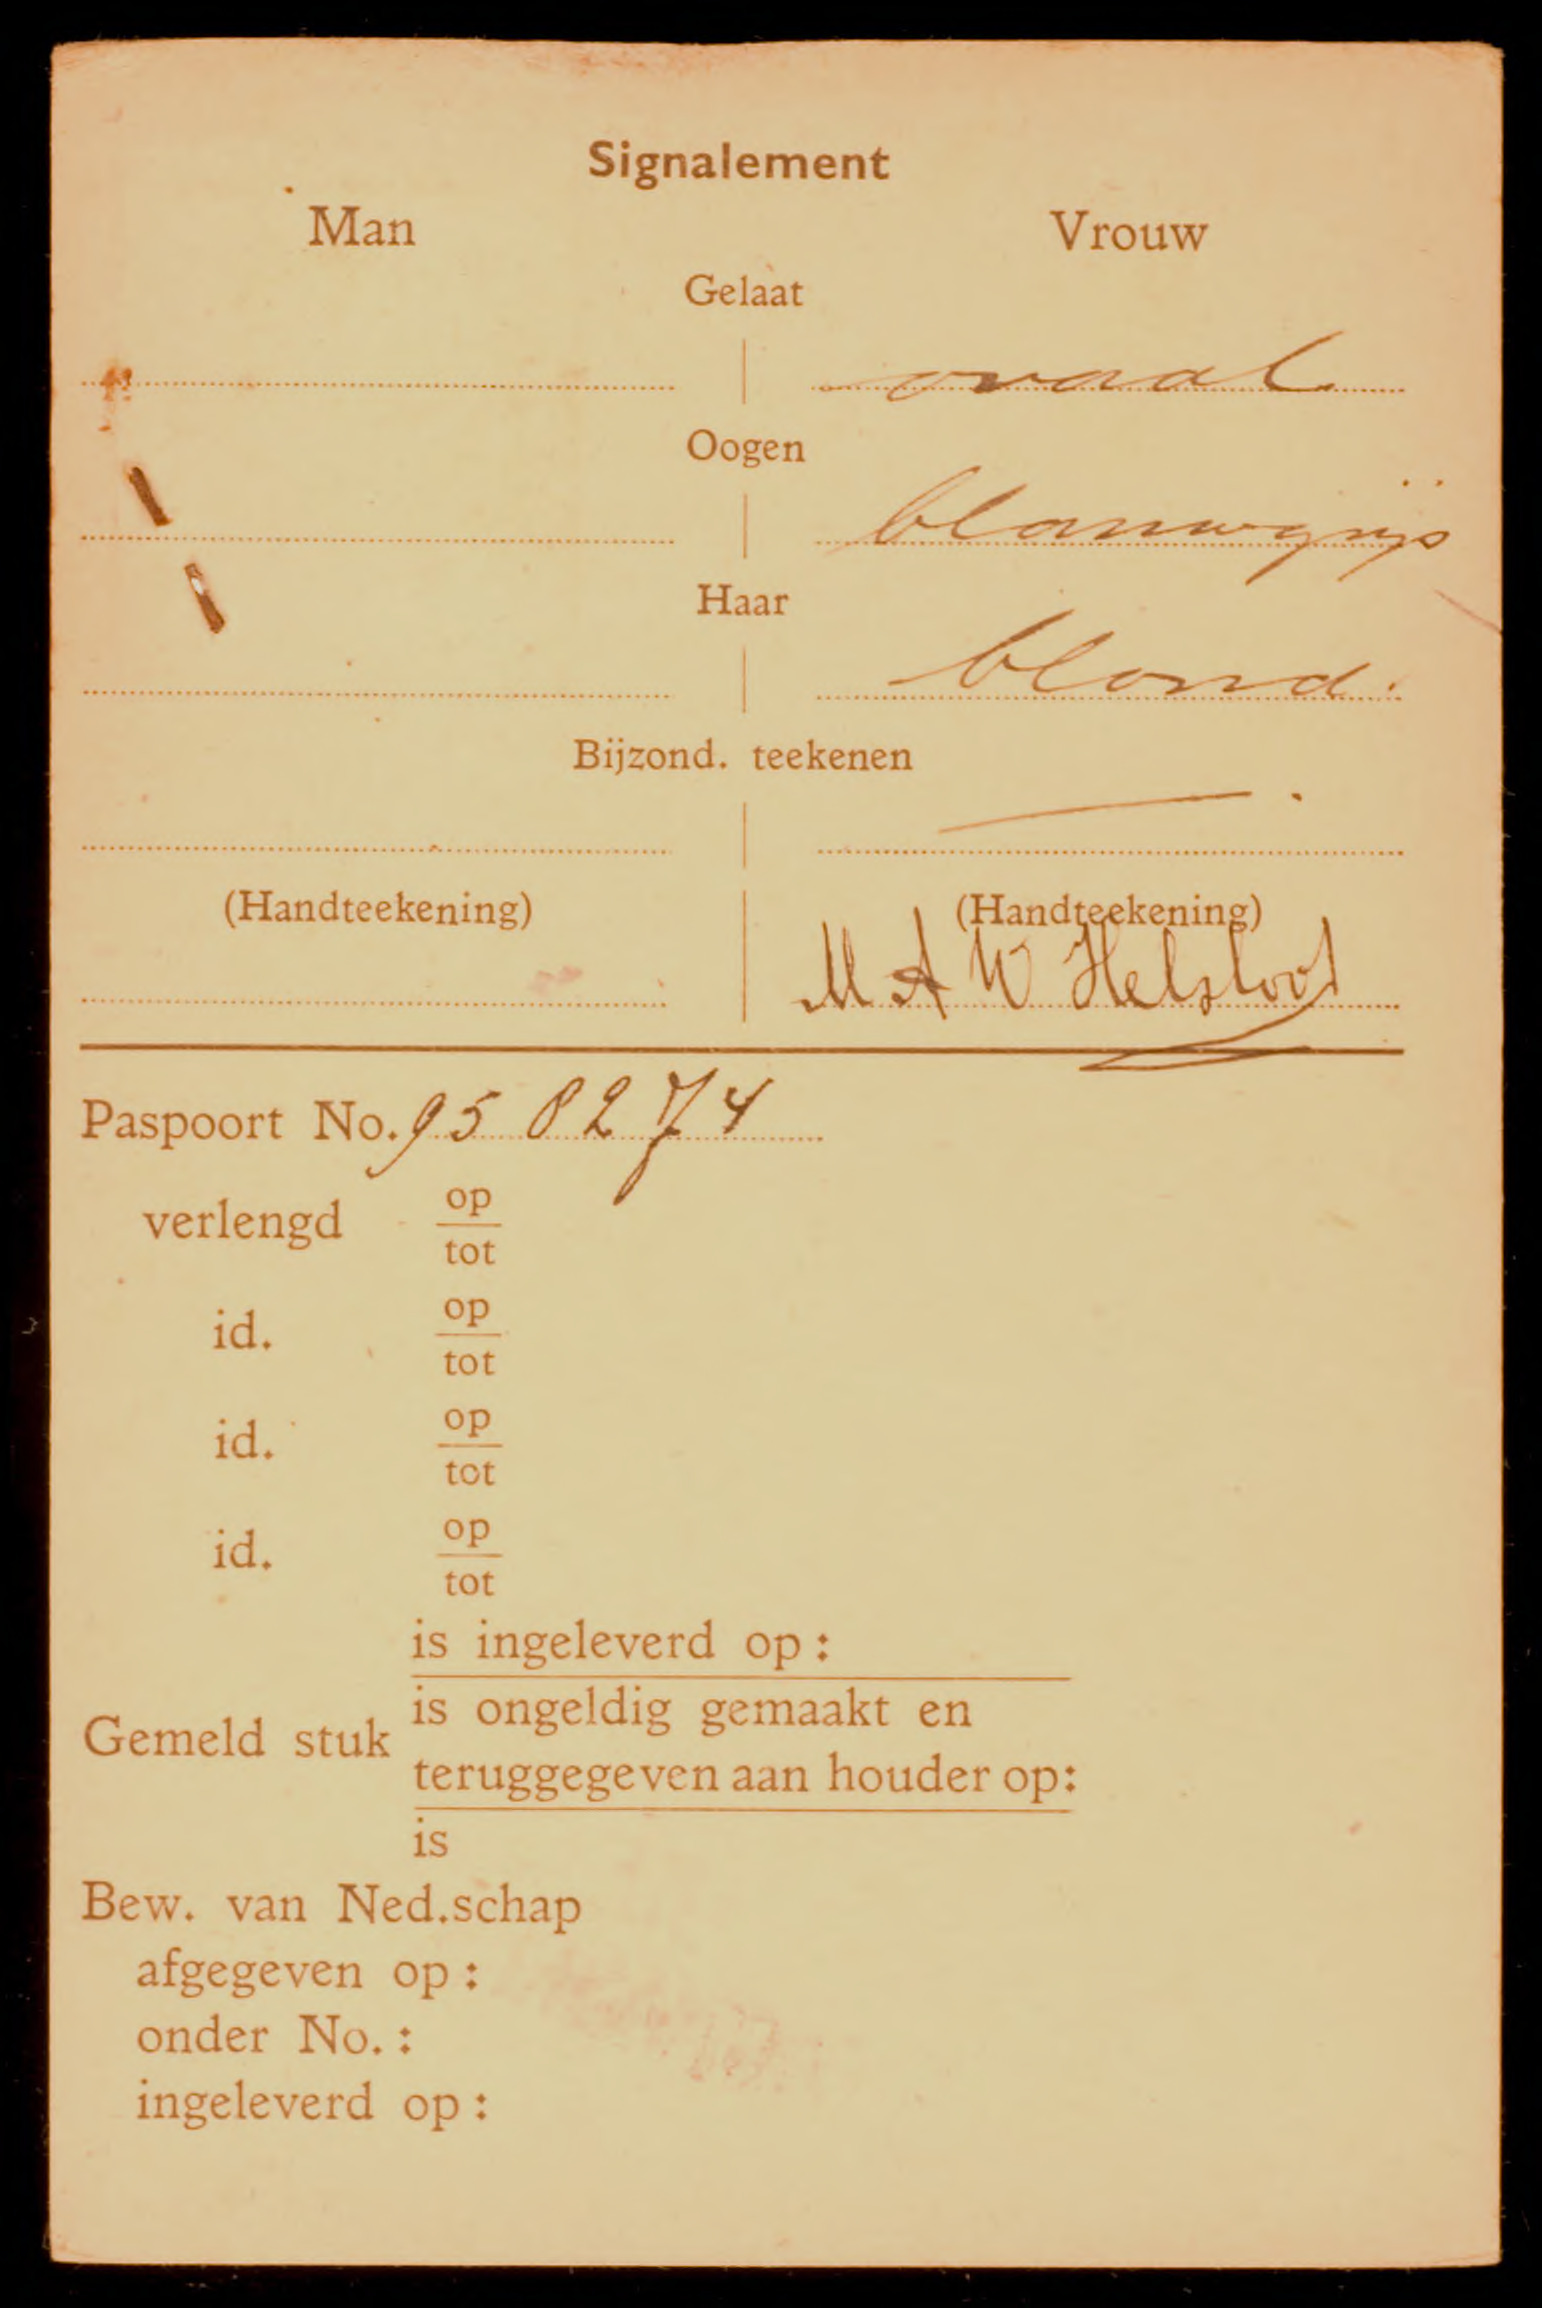 Signalement
Man Vrouw
Gelaat
ovaal
Oogen
blauwgrijs
Haar
blond.
Bijzond. teekenen
—.
(Handteekening) (Handteekening)
M A W Helsloot
Paspoort No. 958274
verlengd op
tot
id. op
tot
id. op
tot
id. op
tot
is ingeleverd op:
Gemeld stuk is ongeldig gemaakt en
teruggegeven aan houder op:
is
Bew. van Ned.schap
afgegeven op:
onder No.:
ingeleverd op: